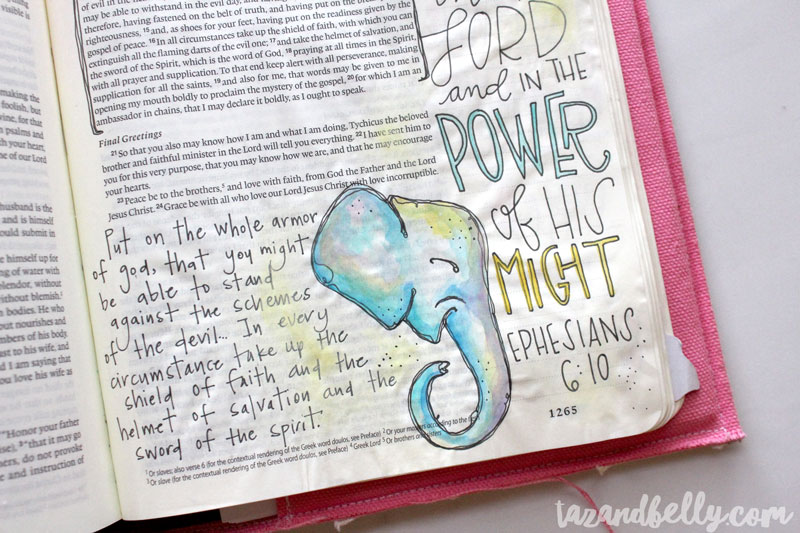 of evil in the
may be able to withstand in the evil day, and having
therefore, having fastened on the belt of truth, and having put on the breast
righteousness, 15 and, as shoes for your feet, having put on the readiness given by the
gospel of peace. 16 In all circumstances take up the shield of faith, with which you can
extinguish all the flaming darts of the evil one; 17 and take the helmet of salvation, and
the sword of the Spirit, which is the word of God, 18 praying at all times in the Spirit,
with all prayer and supplication. To that end keep alert with all perseverance, making
supplication for all the saints, 19 and also for me, that words may be given to me in
opening my mouth boldly to proclaim the mystery of the gospel, 20 for which I am an
ambassador in chains, that I may declare it boldly, as I ought to speak.
Final Greetings
21 So that you also may know how I am and what I am doing, Tychicus the beloved
brother and faithful minister in the Lord will tell you everything. 22 I have sent him to
you for this very purpose, that you may know how we are, and that he may encourage
your hearts.
23 Peace be to the brothers,5 and love with faith, from God the Father and the Lord
Jesus Christ. 24 Grace be with all who love our Lord Jesus Christ with love incorruptible.
Put on the whole armor
of god, that you might
be able to stand
against the schemes
of the devil... In every
circumstance take up the
shield of faith and the
helmet of salvation and the
sword of the spirit.
LORD
and IN THE
POWER
of HIS
MIGHT
EPHESIANS
6:10
1265
1 Or slaves; also verse 6 (for the contextual rendering of the Greek word doulos, see Preface) 2 Or your masters according to the
3 Or slave (for the contextual rendering of the Greek word doulos, see Preface) 4 Greek Lord 5 Or brothers and sisters
visible is
making the
foolish, but
wine, for that
psalms and
your heart,
of our Lord
husband is the
and is himself
should submit in
himself up for
of water with
splendor, without
without blemish.
bodies. He who
nourishes and
members of his body.
fast to his wife, and
and I am saying that
love his wife as
"Honor your father
"that it may go
do not provoke
and instruction of
tazandbelly.com